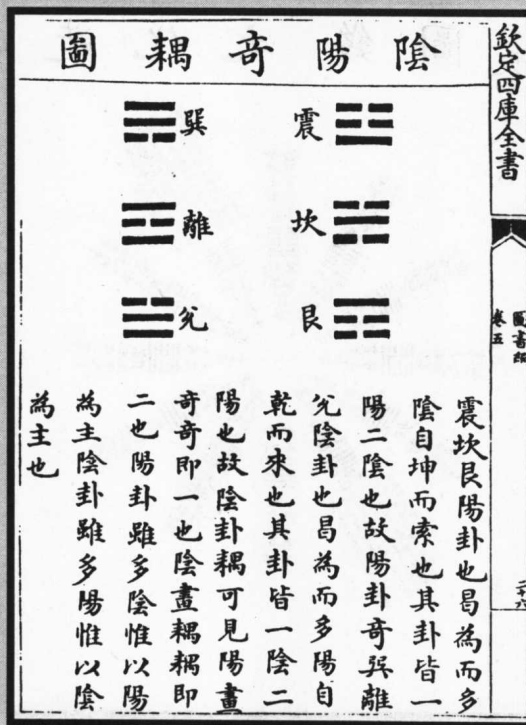 欽定四庫全書
圖書編
卷五
陰陽奇耦圖
震
坎
艮
巽
離
兊
震坎艮陽卦也曷為而多
陰自坤而索也其卦皆一
陽二陰也故陽卦奇巽離
兊陰卦也曷為而多陽自
乾而來也其卦皆一陰二
陽也故陰卦耦可見陽畫
奇奇即一也陰畫耦耦即
二也陽卦雖多陰惟以陽
為主陰卦雖多陽惟以陰
為主也